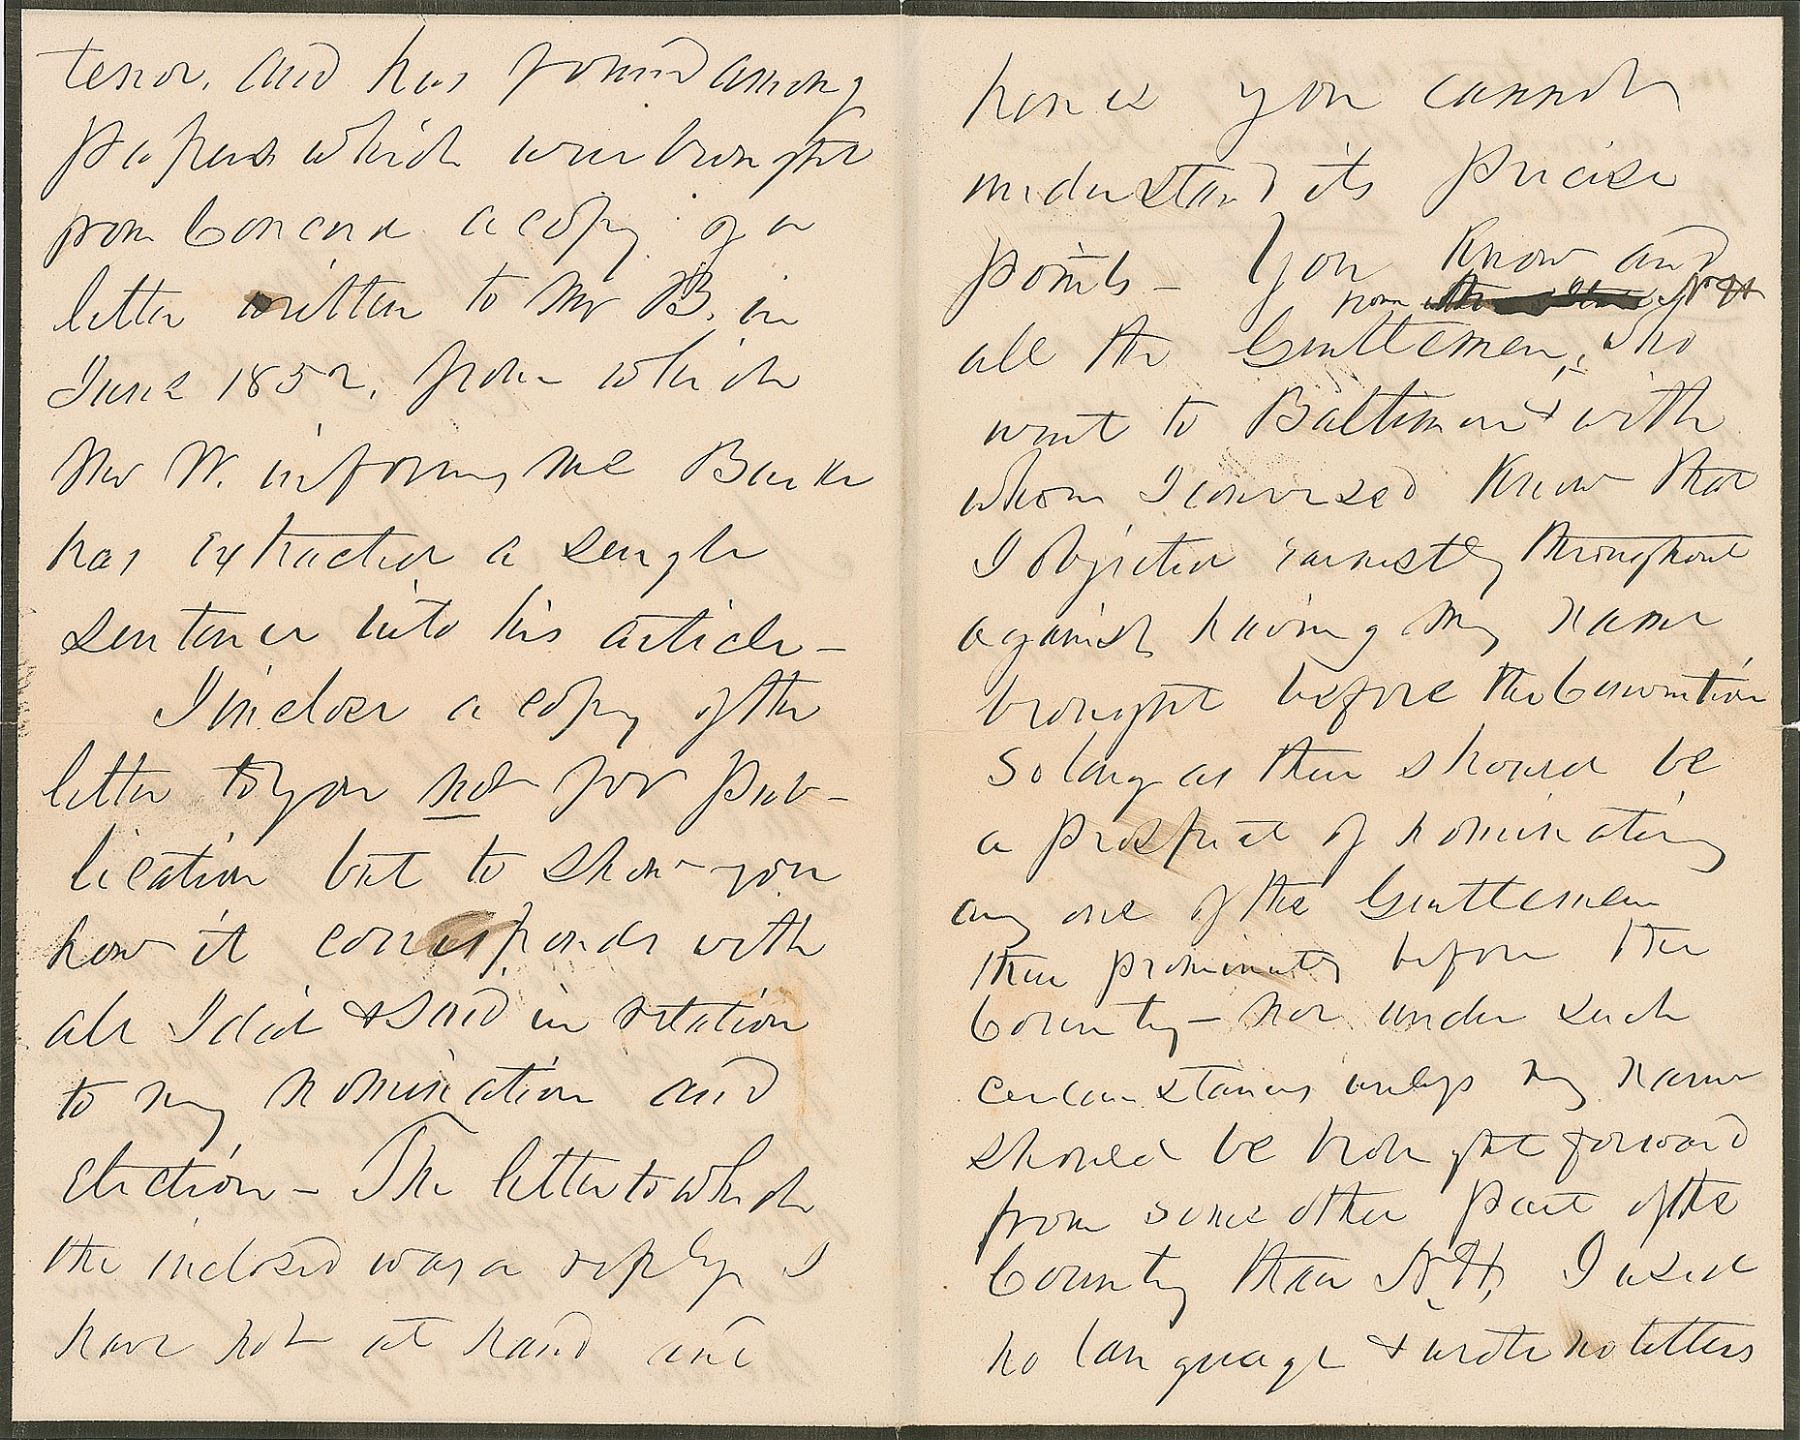 tenor, and has found among
papers which were brought
from Concord a copy of a
letter written to Mr B. in
June 1852, from which
Mr W. informs me Burke
has extracted a single
sentence into his article—
I inclose a copy of the
letter to you not for pub-
lication but to show you
how it corresponds with
all I did & said in relation
to my nomination and
election— The letter to which
the inclosed was a reply I
have not at hand and
hence you cannot
understand its precise
points— You know and
from N H
all the Gentlemen, who
went to Baltimore & with
whom I conversed know that
I objected earnestly throughout
against having my name
brought before the Convention
so long as there should be
a prospect of nominating
any one of the Gentlemen
then prominently before the
Country— nor under such
circumstances unless my name
should be brought forward
from some other part of the
Country than N.H. I used
no language & wrote no letters